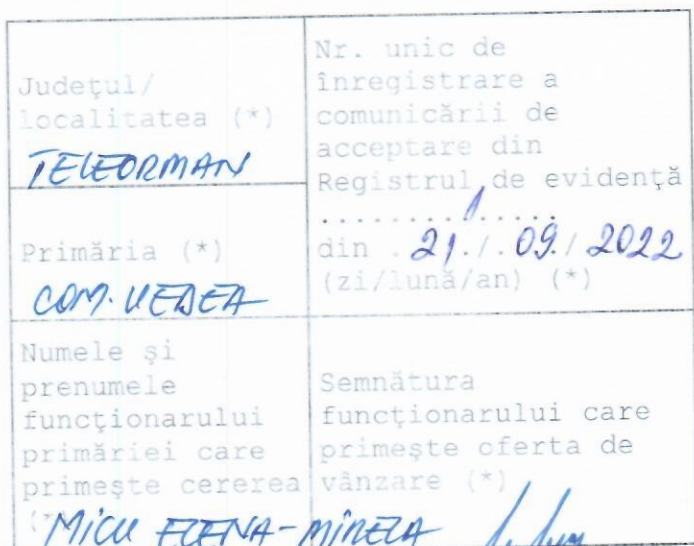 Județul/
localitatea (*)
TELEORMAN
Primăria (*)
COM. VEDEA
Nr. unic de
înregistrare a
comunicării de
acceptare din
Registrul de evidență
.........1.....
din . 21./. 09./ 2022
(zi/lună/an) (*)
Numele şi
prenumele
funcționarului
primăriei care
primeşte cererea
(*)
MICU ELENA-MIRELA
Semnătura
funcționarului care
primeşte oferta de
vânzare (*)